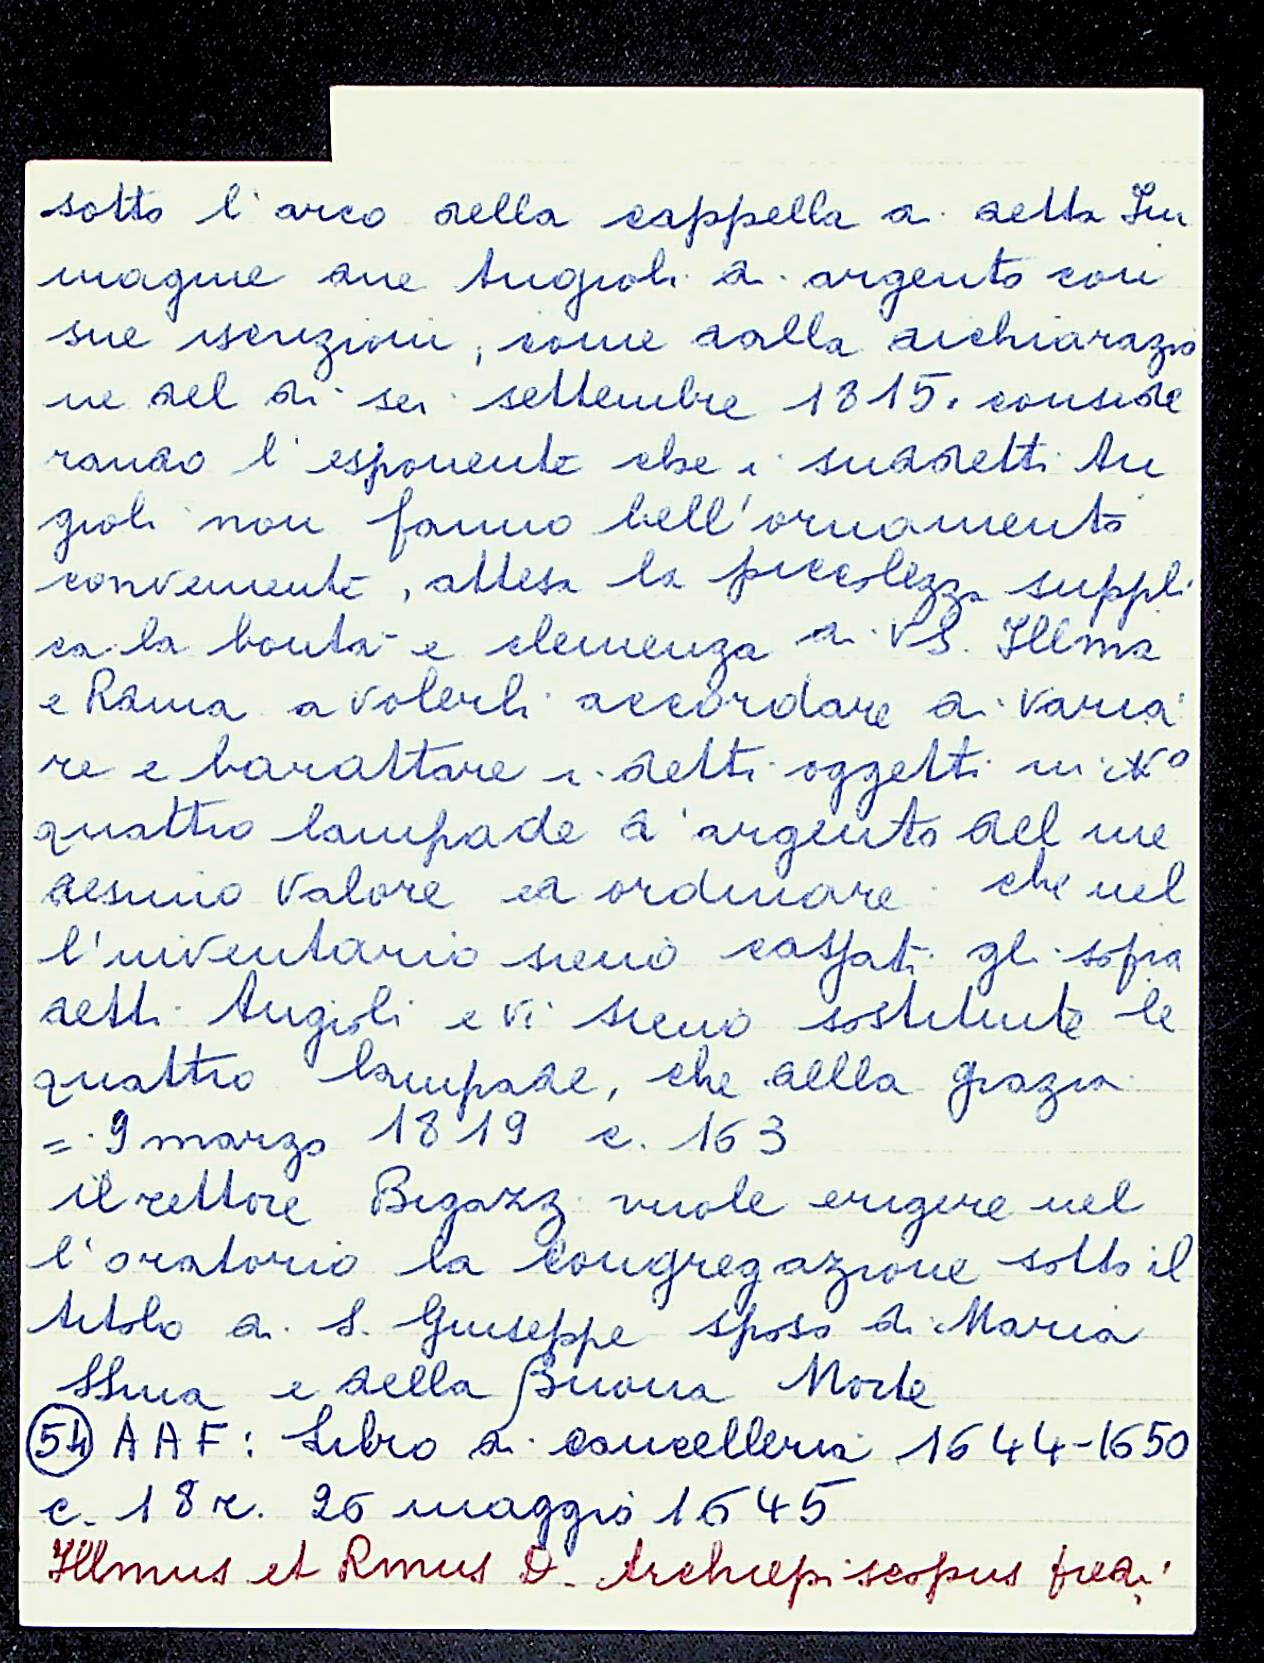 sotto l'arco della cappella di detta Im
magine due Angioli di argento con
sue iscrizioni, come dalla dichiarazio
ne del dì sei settembre 1815. conside
rando l'esponente che i suddetti An
gioli non fanno bell'ornamento
conveniente, attesa la piccolezza suppli
ca la bontà e clemenza di VS. Illma
e Rdma a volerli accordare di varia
re e barattare i detti oggetti in No
quattro lampade d'argento del me
desimo valore ed ordinare che nel
l'inventario sieno cassati gli sopra
detti Angioli e vi sieno sostituite le
quattro lampade, che della grazia
= 9 marzo 1819 c. 163
il rettore Bigazzi vuole erigere nel
l'oratorio la congregazione sotto il
titolo di S. Giuseppe sposo di Maria
SSma e della Buona Morte
54 AAF: Libro di cancelleria 1644-1650
c. 18r. 26 maggio 1645
Illmus et Rmus D. Archiepiscopus